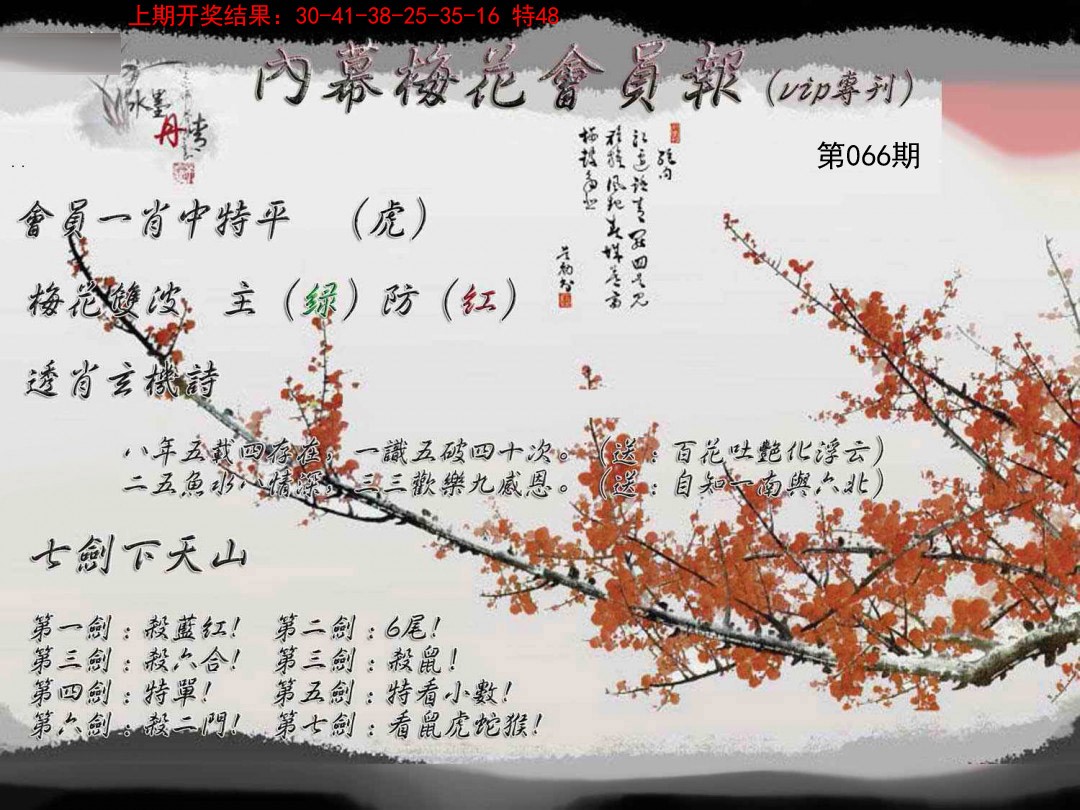 上期开奖结果：30-41-38-25-35-16 特48
內幕梅花會員報（vip專刊）
水墨
丹青
第066期
會員一肖中特平 （虎）
梅花雙波 主（綠）防（紅）
透肖玄機詩
八年五載四存在，一識五破四十次。（送：百花吐艷化浮云）
二五魚水八情深，三三歡樂九感恩。（送：自知一南與六北）
七劍下天山
第一劍：殺藍紅！ 第二劍：6尾！
第三劍：殺六合！ 第三劍：殺鼠！
第四劍：特單！ 第五劍：特看小數！
第六劍：殺二門！ 第七劍：看鼠虎蛇猴！